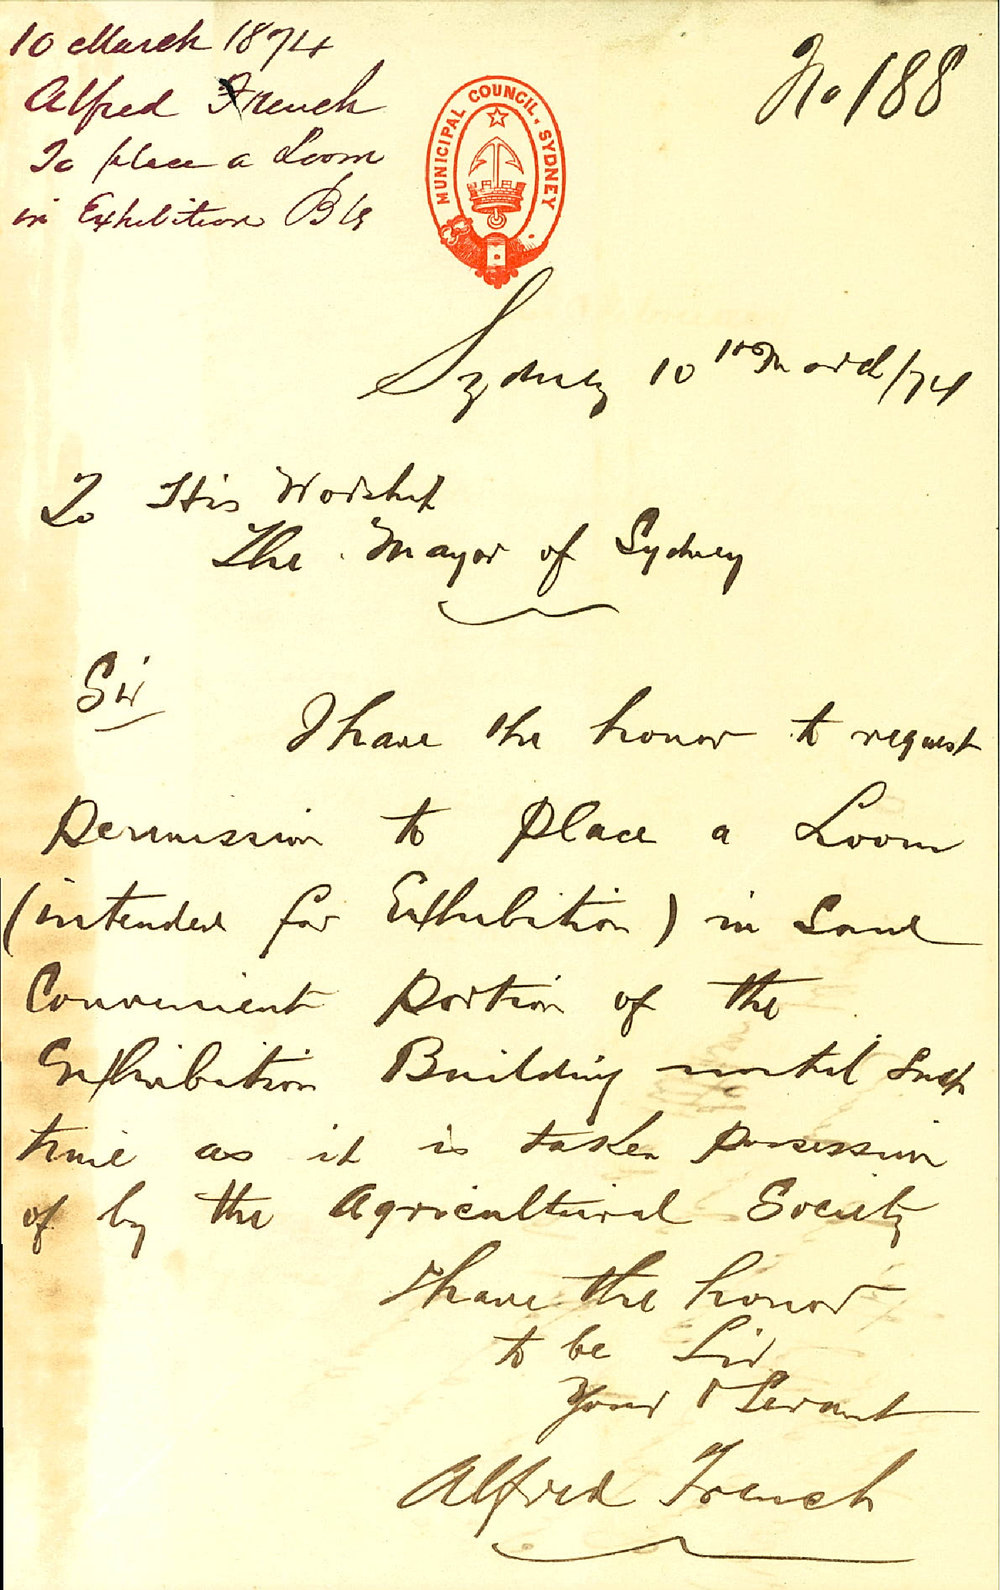 10 March 1874
Alfred French
To place a Loom
in Exhibition Bg
No 188
MUNICIPAL COUNCIL, SYDNEY
Sydney 10th March/74
To His Worship
The Mayor of Sydney
Sir
I have the honor to request
Permission to Place a Loom
(intended for Exhibition) in Some
Convenient Portion of the
Exhibition Building until Such
time as it is taken Possession
of by the Agricultural Society
I have the honor
to be Sir
Your Servant
Alfred French